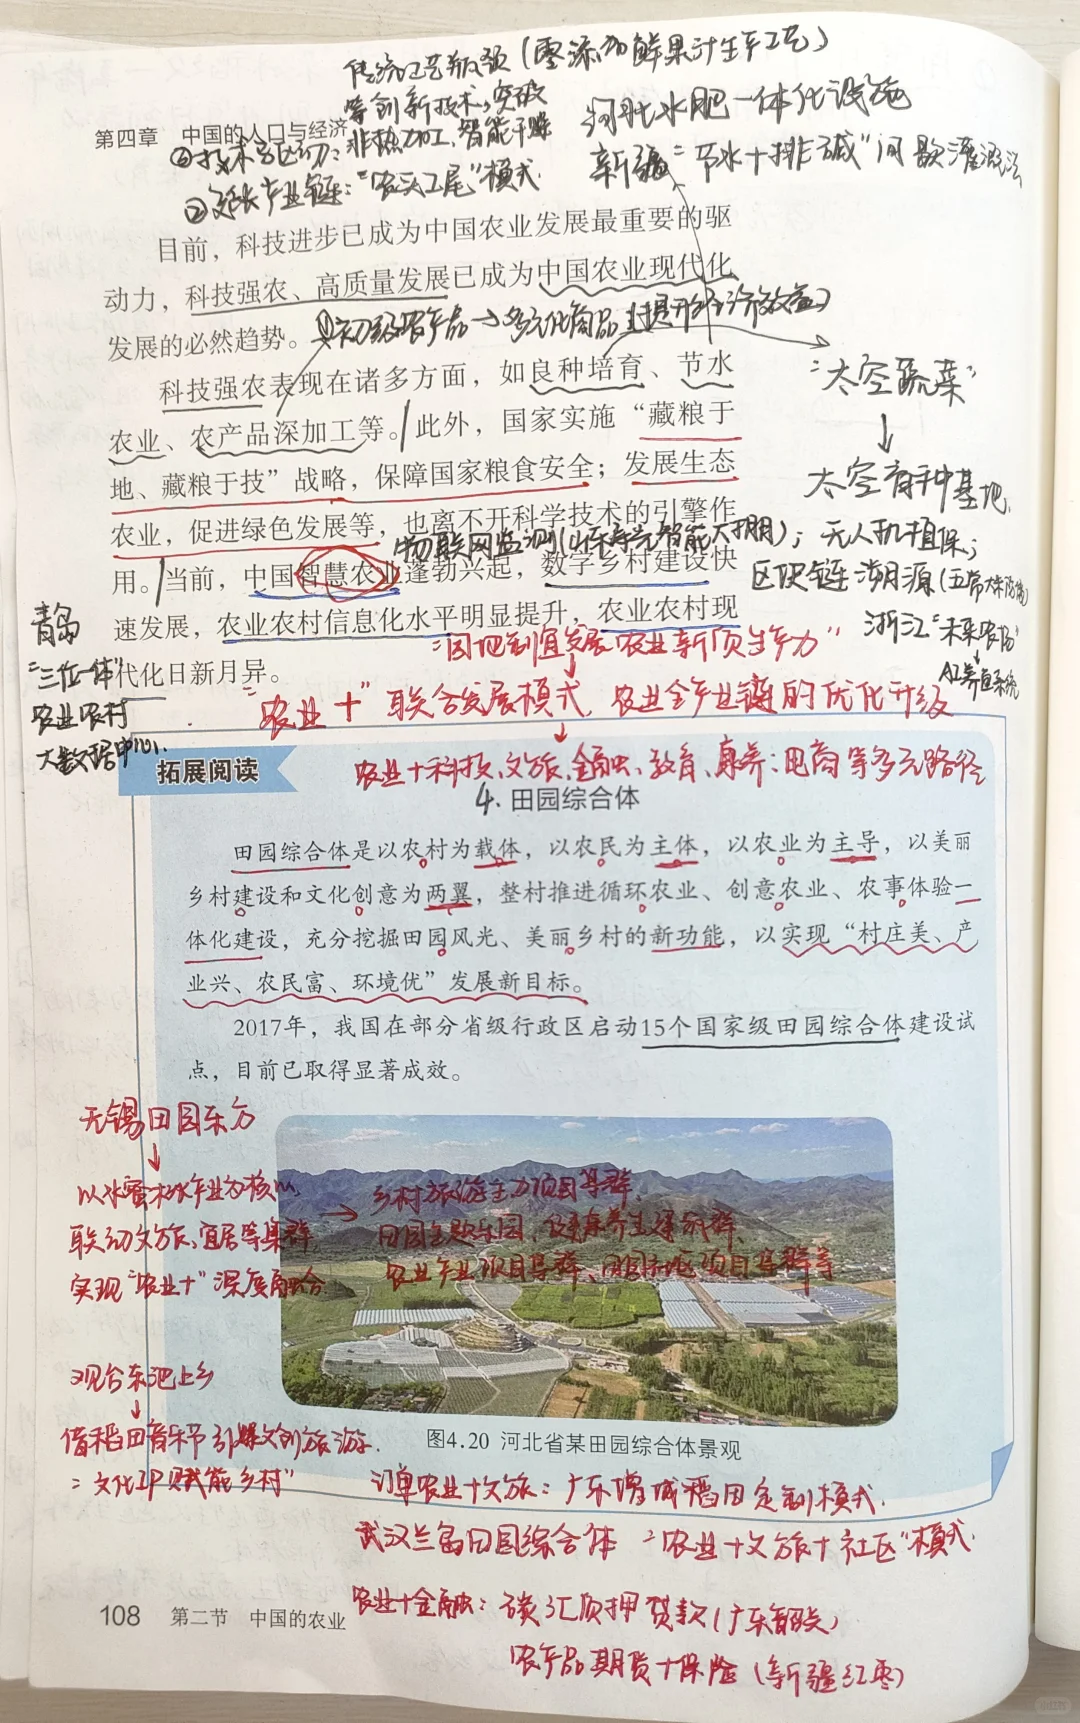 传统工艺瓶颈（零添加鲜果汁生产工艺）
等创新技术，突破
非热加工、智能干燥
第四章 中国的人口与经济
①技术驱动：
②延长产业链：“农头工尾”模式
河北水肥一体化设施
新疆“节水+排碱”间歇灌溉法
目前，科技进步已成为中国农业发展最重要的驱
动力，科技强农、高质量发展已成为中国农业现代化
发展的必然趋势。
初级农产品→多元化商品（提升经济效益）
“太空蔬菜”
↓
太空育种基地
科技强农表现在诸多方面，如良种培育、节水
农业、农产品深加工等。此外，国家实施“藏粮于
地、藏粮于技”战略，保障国家粮食安全；发展生态
农业，促进绿色发展等，也离不开科学技术的引擎作
物联网监测（山东寿光智能大棚）；无人机植保；
区块链溯源（五常大米防伪）
用。当前，中国智慧农业蓬勃兴起，数字乡村建设快
速发展，农业农村信息化水平明显提升，农业农村现
代化日新月异。
浙江“未来农场”
AI养殖系统
青岛
“三位一体”
农业农村
大数据中心
“因地制宜发展农业新质生产力”
“农业+”联合发展模式，农业全产业链的优化升级
↓
农业+科技、文旅、金融、教育、康养、电商等多元路径
拓展阅读
4. 田园综合体
田园综合体是以农村为载体，以农民为主体，以农业为主导，以美丽
乡村建设和文化创意为两翼，整村推进循环农业、创意农业、农事体验一
体化建设，充分挖掘田园风光、美丽乡村的新功能，以实现“村庄美、产
业兴、农民富、环境优”发展新目标。
2017年，我国在部分省级行政区启动15个国家级田园综合体建设试
点，目前已取得显著成效。
无锡田园东方
↓
以水蜜桃产业为核心
联动文旅、宜居等集群
实现“农业+”深度融合
→ 乡村旅游主力项目集群、
田园主题乐园、健康养生建筑群、
农业产业项目集群、田园社区项目集群等
观台东池上乡
↓
借稻田音乐节引爆文创旅游
“文化IP赋能乡村”
图4.20 河北省某田园综合体景观
订单农业+文旅：广东增城稻田定制模式
武汉兰岛田园综合体 “农业+文旅+社区”模式
农业+金融：碳汇质押贷款（广东韶关）
农产品期货+保险（新疆红枣）
108 第二节 中国的农业